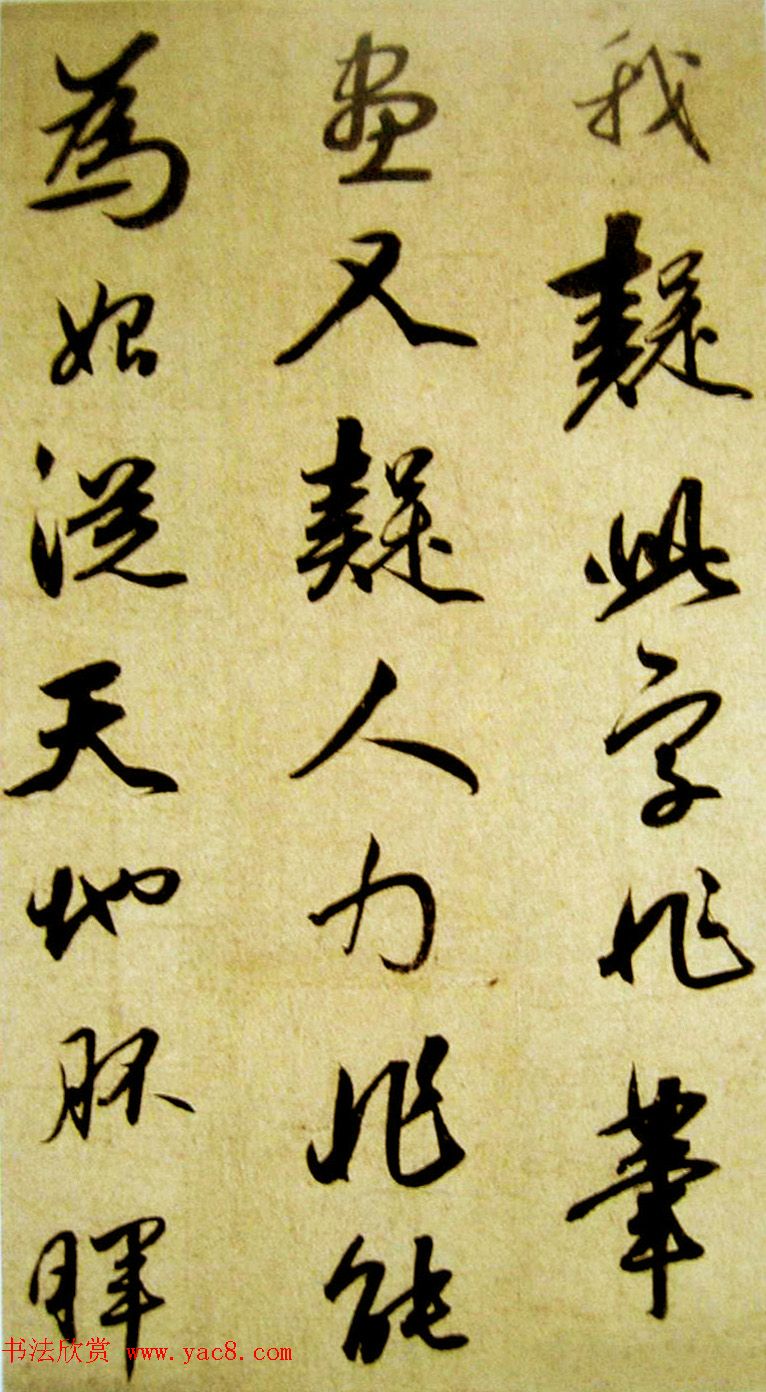 我疑此字非筆
畫又疑人力非能
為始從天地胚暉
书法欣赏 www.yac8.com